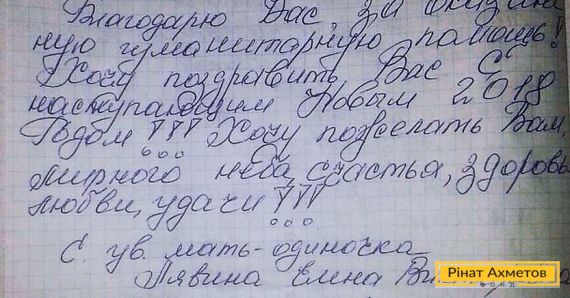 Благодарю Вас, за оказан
ную гуманитарную помощь!
Хочу поздравить Вас с
наступающим Новым 2018
Годом!!! Хочу пожелать Вам,
мирного неба, счастья, здоровь
любви, удачи!!!
С. ув. мать-одиночка
Елена
Рінат Ахметов